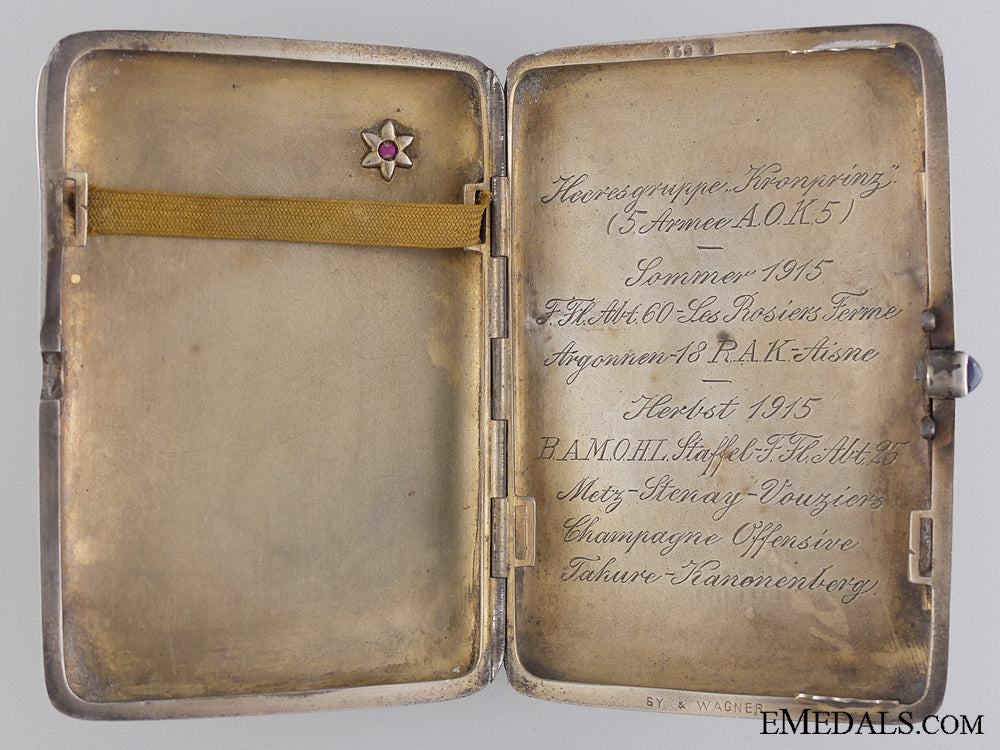 950
Heeresgruppe „Kronprinz"
(5. Armee A.O.K. 5)
Sommer 1915
F. Fl. Abt. 60 - Les Rosiers Ferme
Argonnen - 18 R.A.K. - Aisne
Herbst 1915
B.A.M.O.H.L. Staffel - F. Fl. Abt. 25
Metz - Stenay - Vouziers
Champagne Offensive
Tahure - Kanonenberg.
SY. & WAGNER
EMEDALS.COM